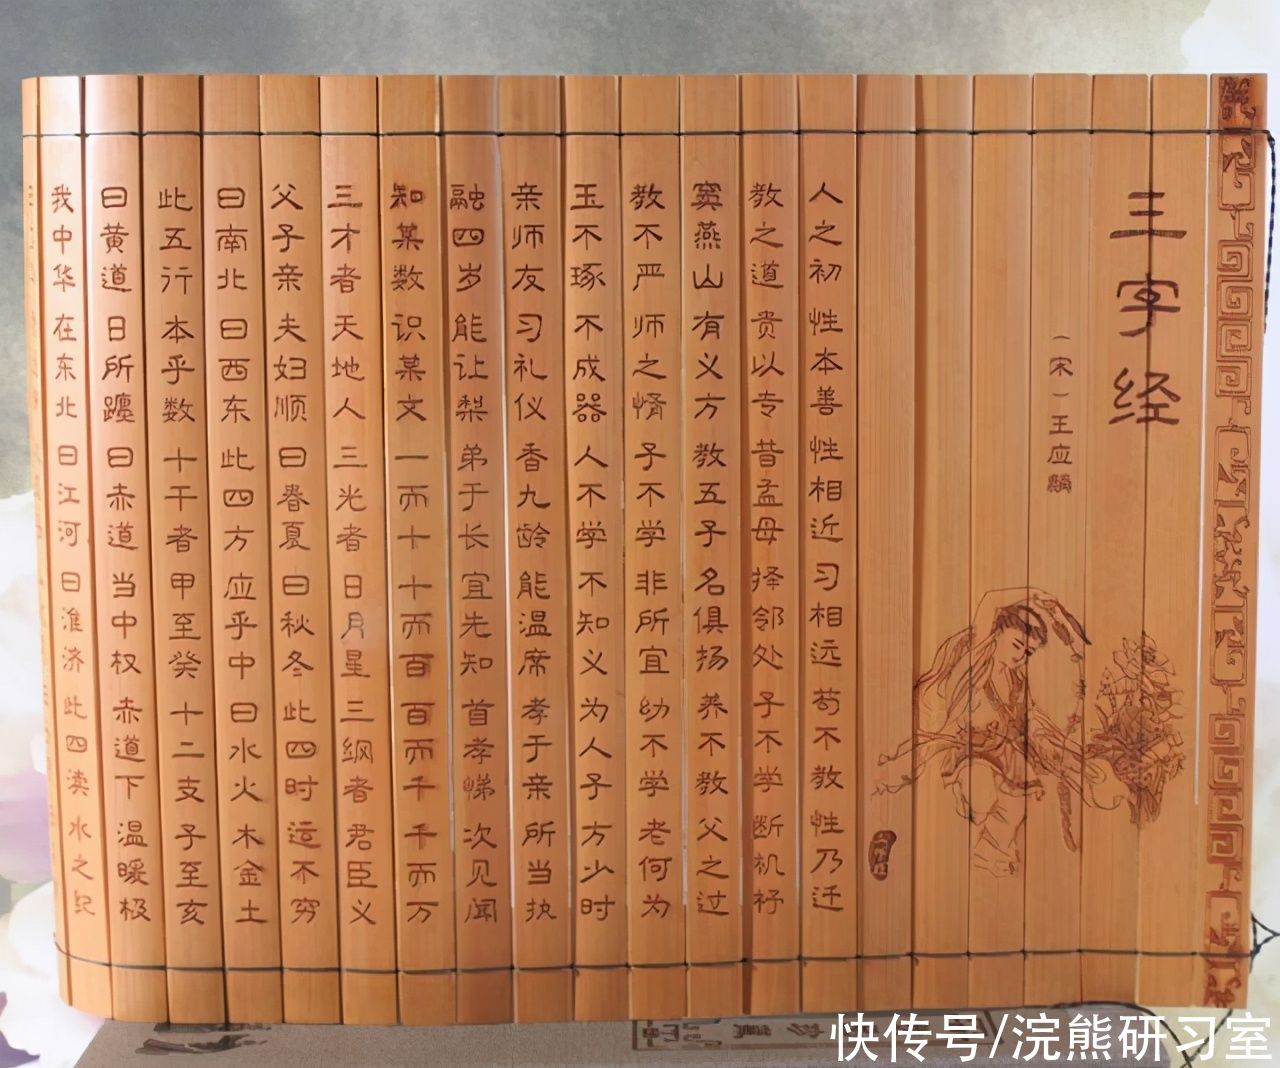 三字经
（宋）王应麟
人之初 性本善 性相近 习相远 苟不教 性乃迁
教之道 贵以专 昔孟母 择邻处 子不学 断机杼
窦燕山 有义方 教五子 名俱扬 养不教 父之过
教不严 师之惰 子不学 非所宜 幼不学 老何为
玉不琢 不成器 人不学 不知义 为人子 方少时
亲师友 习礼仪 香九龄 能温席 孝于亲 所当执
融四岁 能让梨 弟于长 宜先知 首孝悌 次见闻
知某数 识某文 一而十 十而百 百而千 千而万
三才者 天地人 三光者 日月星 三纲者 君臣义
父子亲 夫妇顺 曰春夏 曰秋冬 此四时 运不穷
曰南北 曰西东 此四方 应乎中 曰水火 木金土
此五行 本乎数 十干者 甲至癸 十二支 子至亥
曰黄道 日所躔 曰赤道 当中权 赤道下 温暖极
我中华 在东北 曰江河 曰淮济 此四渎 水之纪
快传号/浣熊研习室